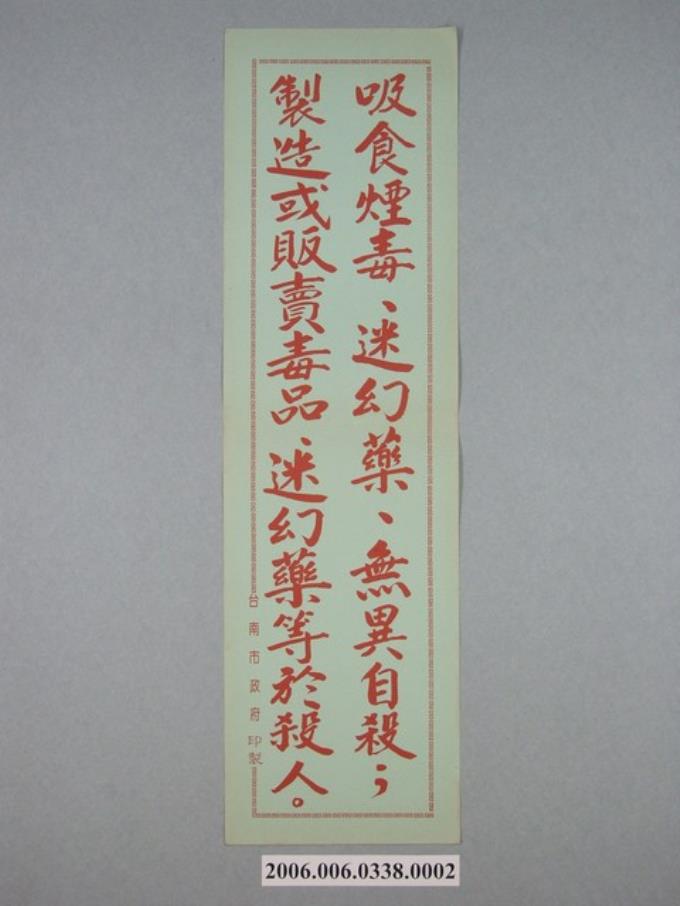 吸食煙毒、迷幻藥、無異自殺；
製造或販賣毒品、迷幻藥等於殺人。
台南市政府印製
2006.006.0338.0002